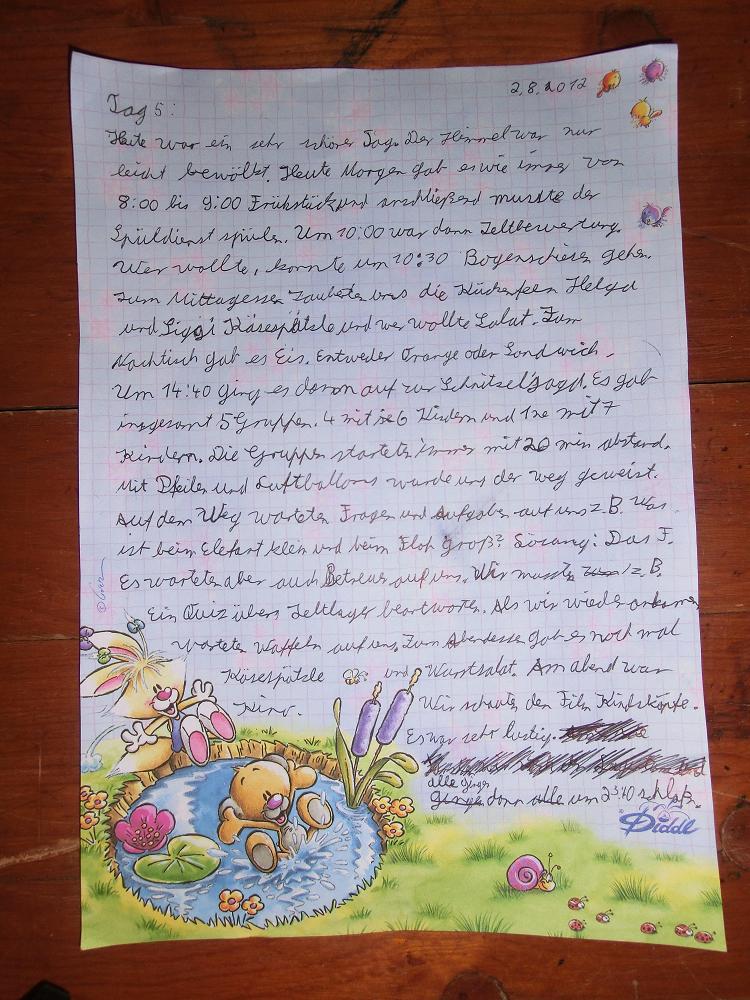 2.8.2012
Tag 5:
Heute war ein sehr schöner Tag. Der Himmel war nur
leicht bewölkt. Heute Morgen gab es wie immer von
8:00 bis 9:00 Frühstück und anschließend musste der
Spüldienst spülen. Um 10:00 war dann Zeltbewertung.
Wer wollte, konnte um 10:30 Bogenschiesen gehen.
Zum Mittagessen zauberten uns die Küchenfeen Helga
und Siggi Käsespätzle und wer wollte Salat. Zum
Nachtisch gab es Eis. Entweder Orange oder Sandwich.
Um 14:40 ging es dann auf zur Schnitzeljagd. Es gab
insgesamt 5 Gruppen. 4 mit je 6 Kindern und 1ne mit 7
Kindern. Die Gruppen starteten immer mit 20 min abstand.
Mit Pfeilen und Luftballons wurde uns der weg geweist.
Auf dem Weg warteten Fragen und Aufgaben auf uns z.B. Was
ist beim Elefant klein und beim Floh groß? Lösung: Das F.
Es warteten aber auch Betreuer auf uns. Wir mussten z.B.
Ein Quiz übers Zeltlager beantworten. Als wir wieder ankamen
warteten Waffeln auf uns. Zum Abendessen gab es noch mal
Käsespätzle und Wurstsalat. Am abend war
Kino. Wir schauten den Film Kindsköpfe.
Es war sehr lustig.
alle gingen
dann alle um 23:40 schlafen.
Diddl